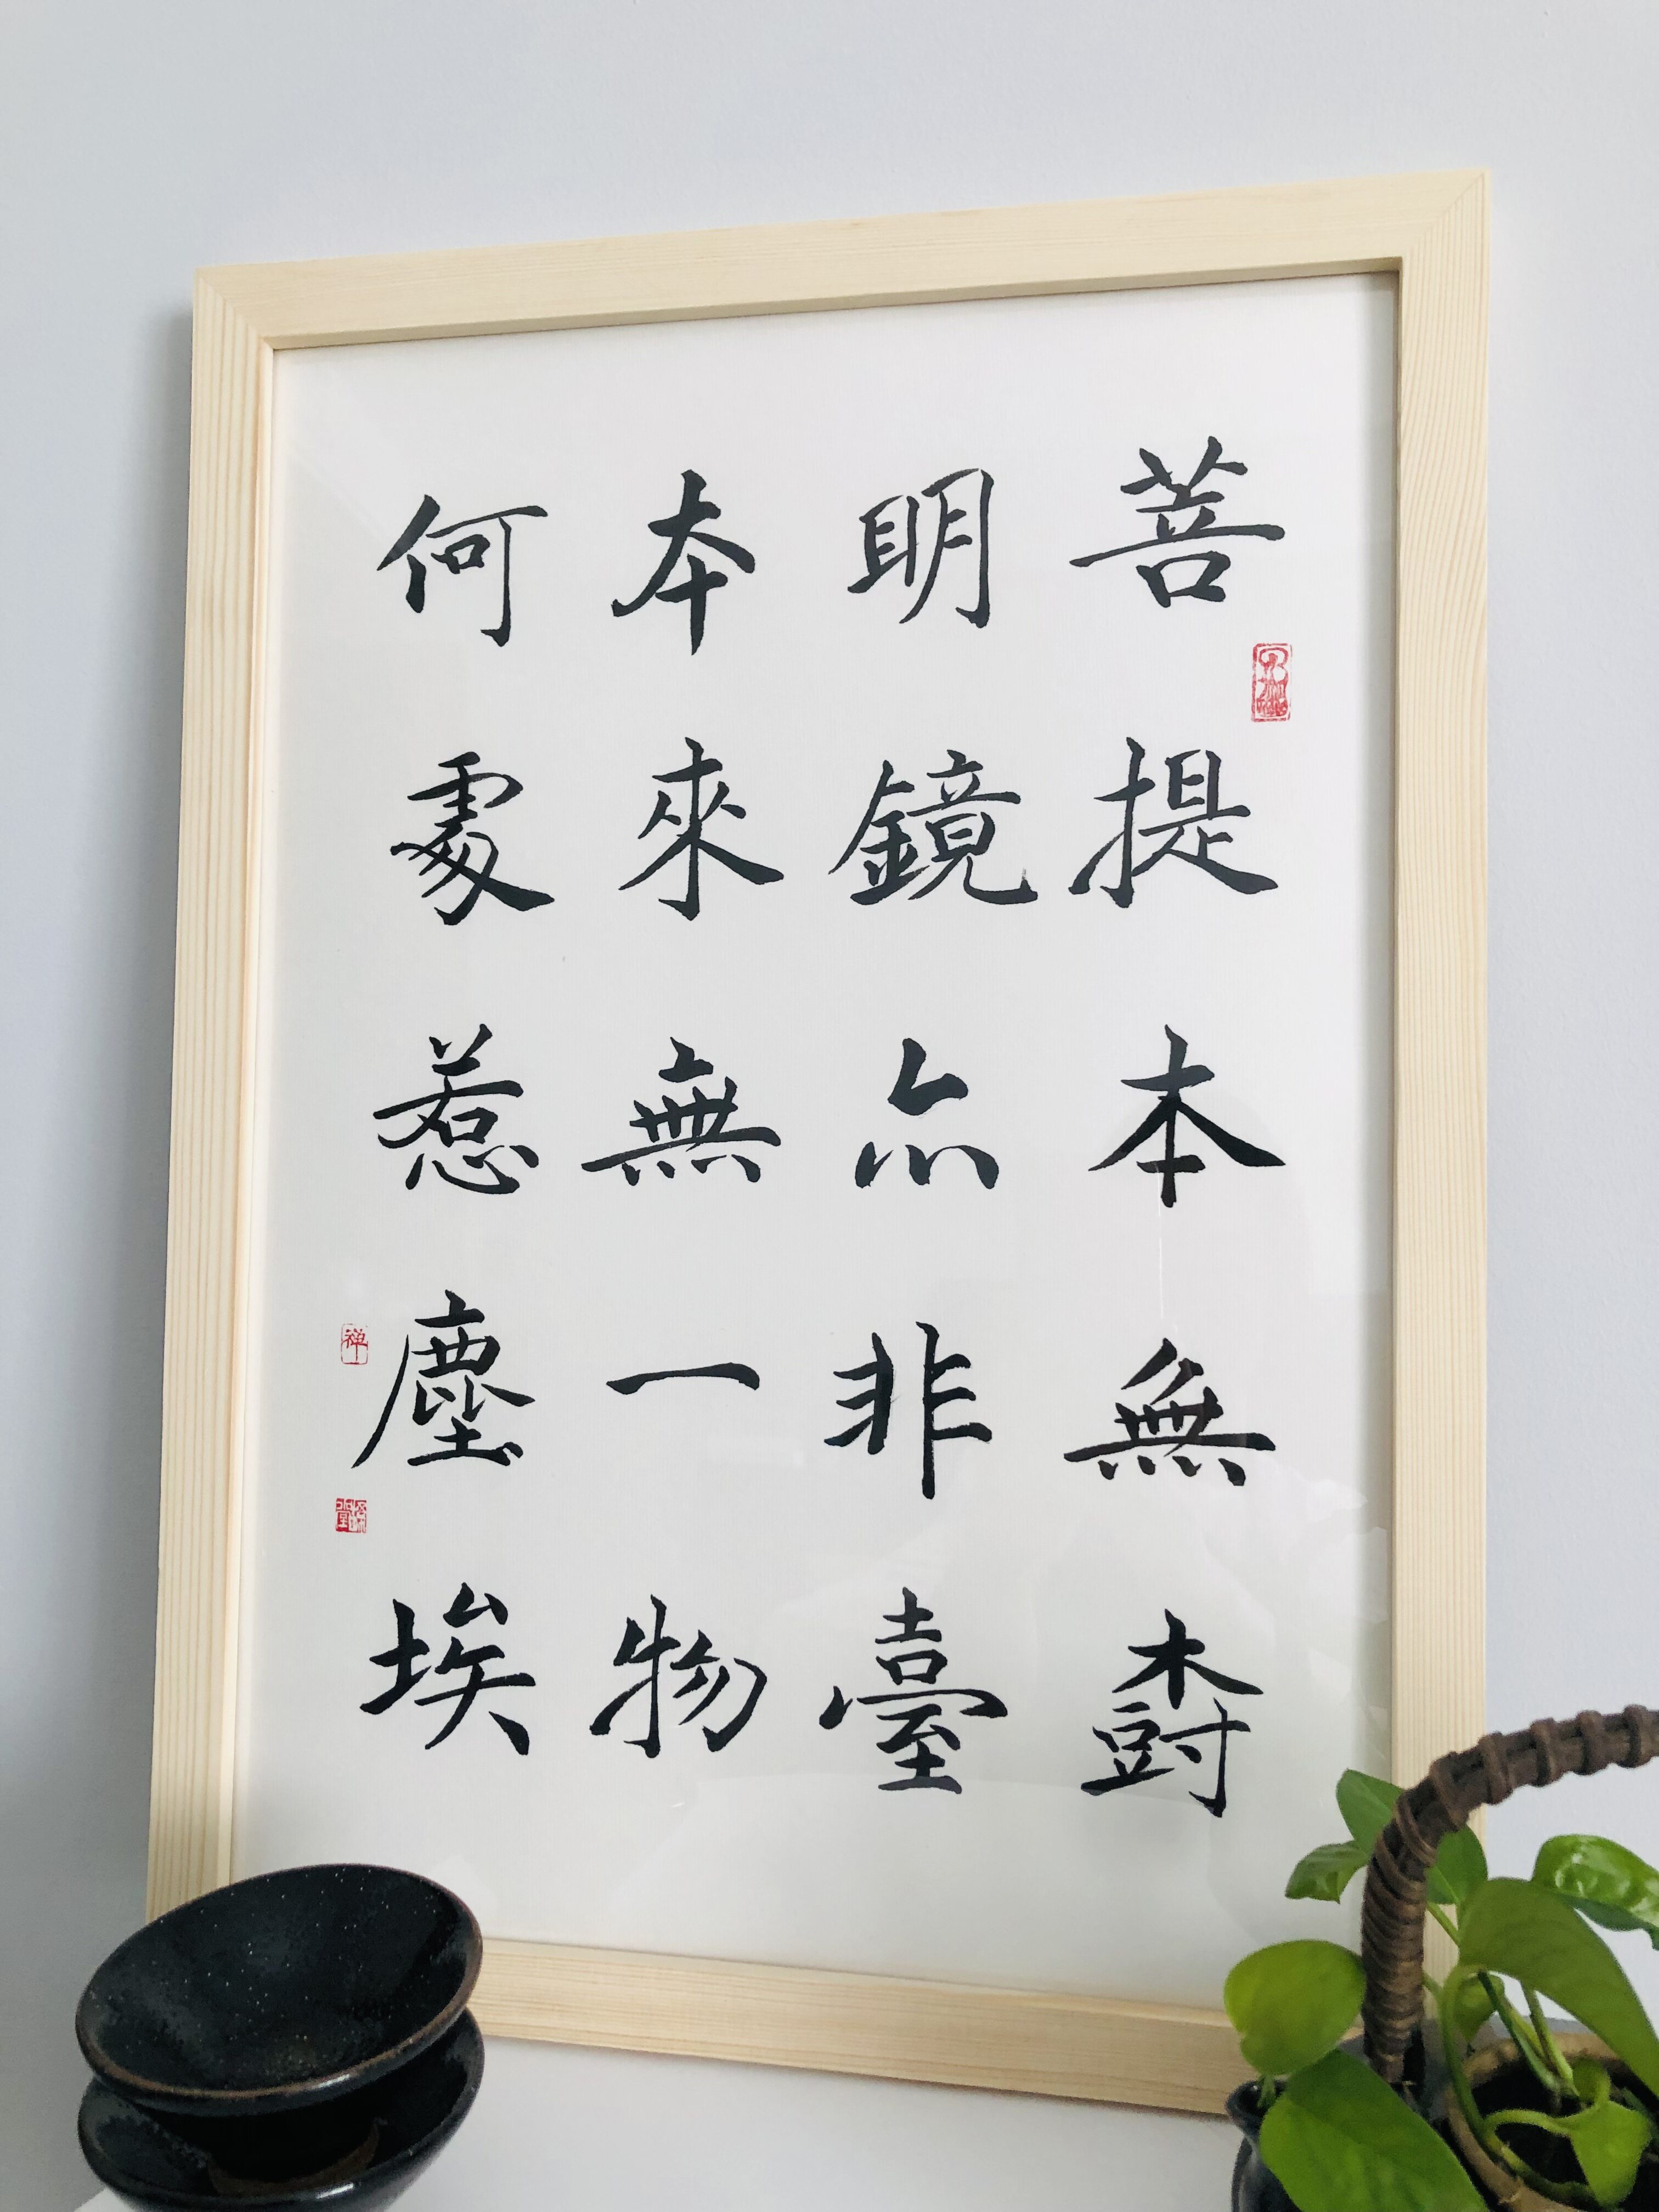 菩提本無樹
明鏡亦非臺
本來無一物
何處惹塵埃
禅